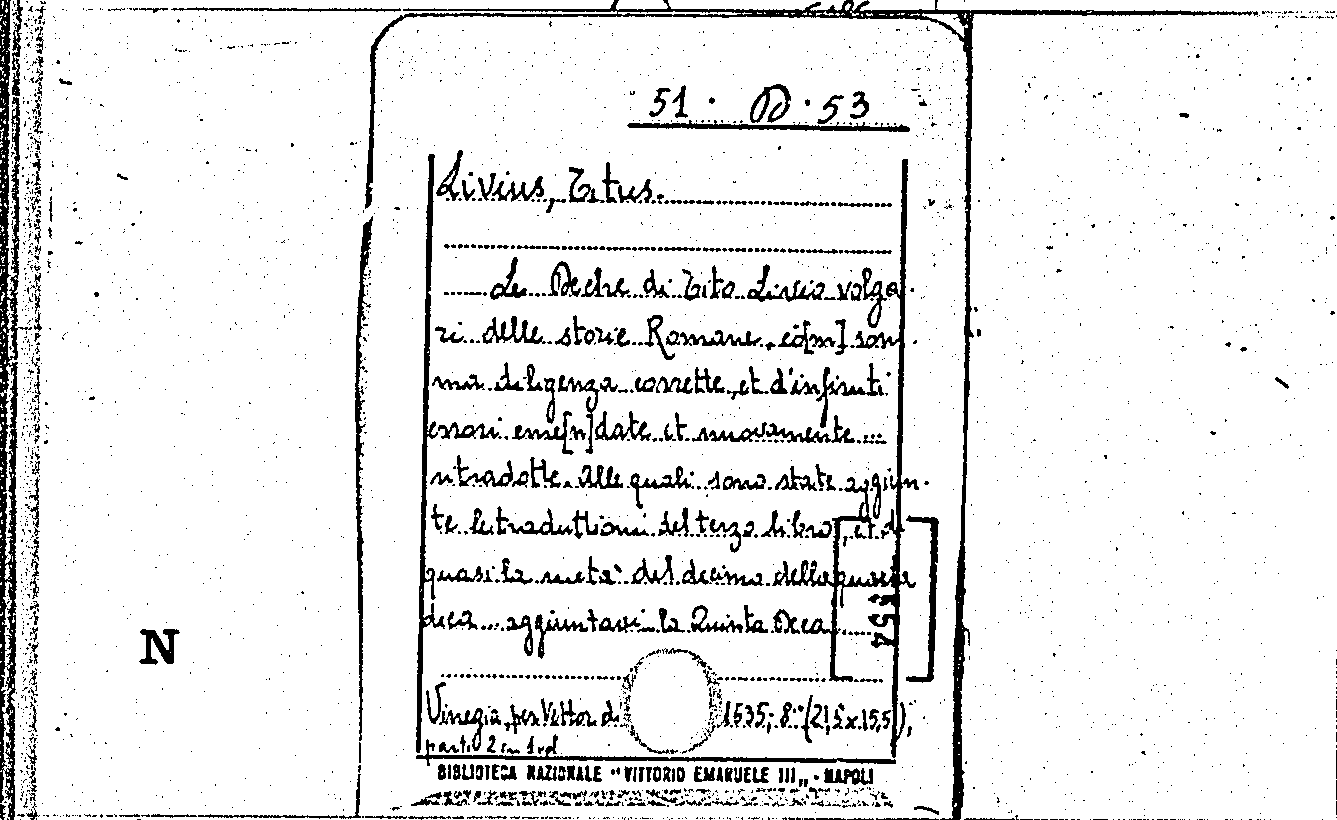 51 · D · 53
Livius, Titus.
Le Deche di Tito Livio volga-
ri delle storie Romane, cō[m] som-
ma diligenza corrette, et d'infiniti
errori eme[n]date et nuovamente ...
ntradotte. Alle quali sono state aggiun-
te le traduttioni del terzo libro, et di
quasi la metà del decimo della quarta
deca ... aggiuntavi la Quinta Deca
554
Vinegia, per Vettor d 1535; 8º (21,5 x 15,5),
parti 2 in 1 vol
BIBLIOTECA NAZIONALE "VITTORIO EMANUELE III„ - NAPOLI
N